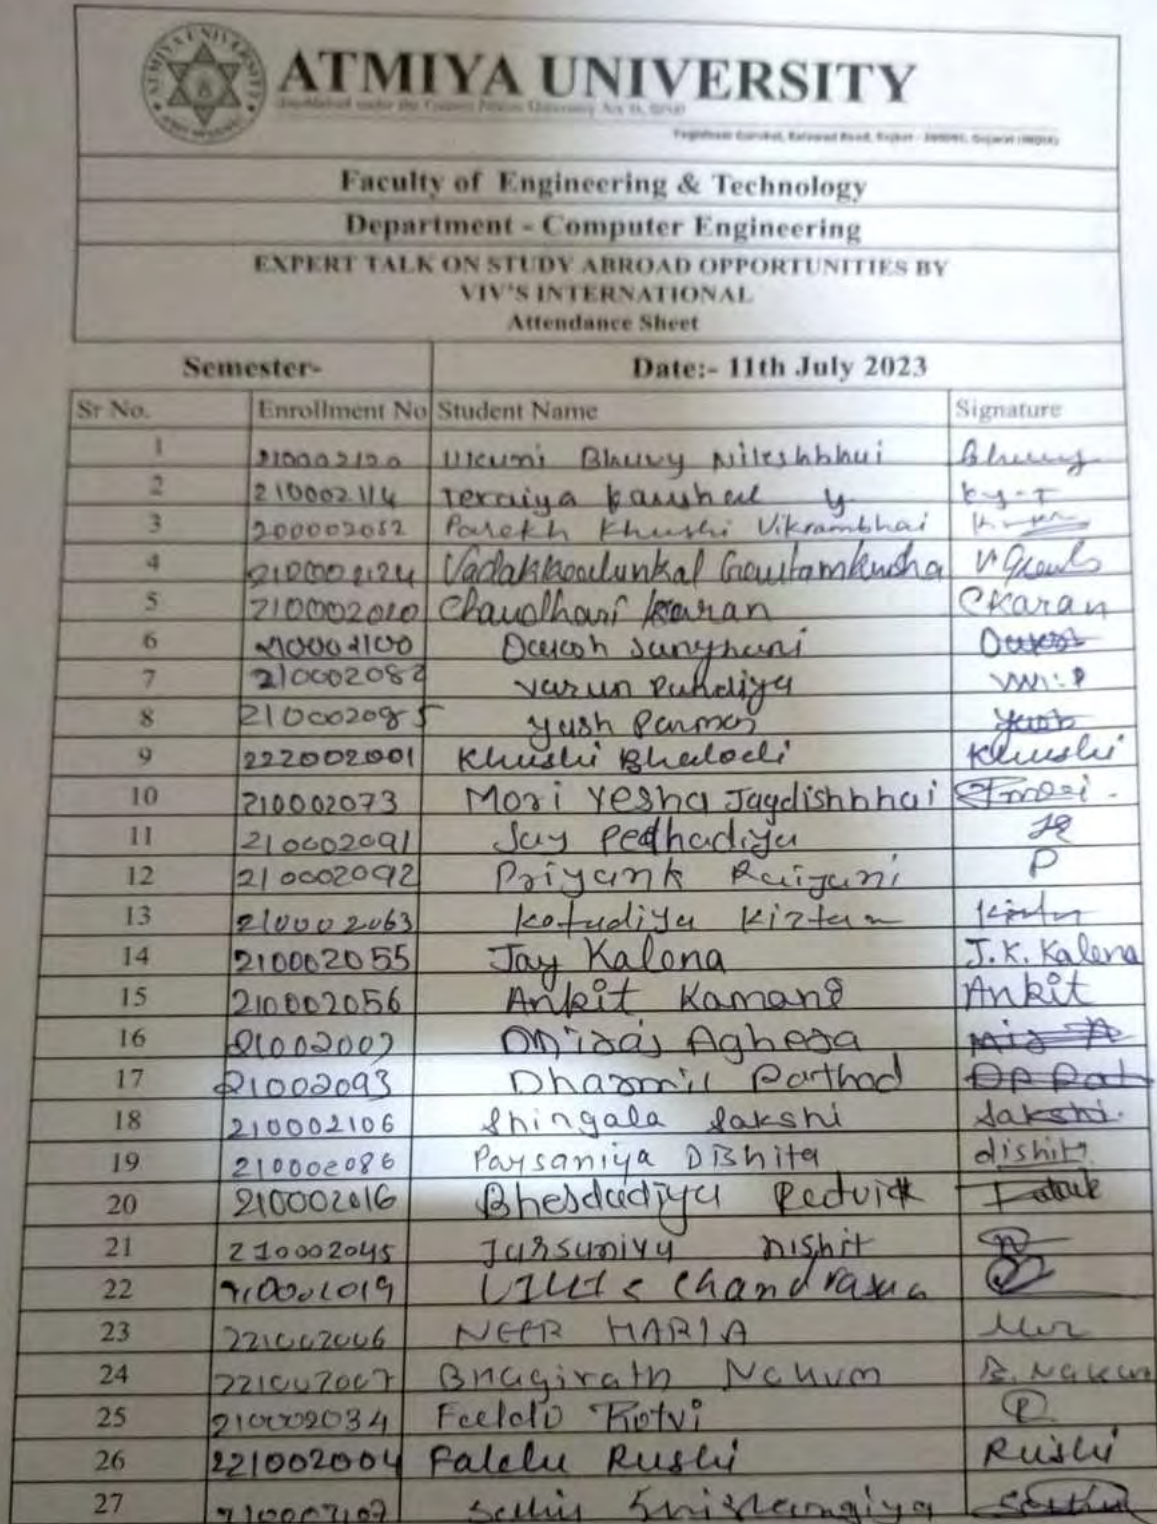 ATMIYA UNIVERSITY
Faculty of Engineering & Technology
Department - Computer Engineering
EXPERT TALK ON STUDY ABROAD OPPORTUNITIES BY
VIV'S INTERNATIONAL
Attendance Sheet
Semester- Date:- 11th July 2023
Sr No. Enrollment No Student Name Signature
1 210002120 Bhuvy Nileshbhai Bhuvy
2 210002114 Teraiya Kaushal y k.y-T
3 200002052 Parekh Khushi Vikrambhai
4 210002124
5 210002010 Chaudhari Karan CKaran
6 210002100
7 210002082 Varun Pandiya
8 210002085 Yash Parmar Yash
9 222002001 Khushi Bhalodi Khushi
10 210002073 Mori Yesha Jagdishbhai
11 210002091 Jay Pedhadiya
12 210002092 Priyank Raiyani P
13 210002063 Kotadiya Kirtan
14 210002055 Jay Kalena J.K. Kalena
15 210002056 Ankit Kamani Ankit
16 21002002 Aghera
17 21002093 Dharmil Rathod
18 210002106 Shingala Sakshi Sakshi.
19 210002086 Parsaniya Dishita dishita
20 210002016 Bhesdadiya
21 210002045 Jarsaniya Nishit
22 210002019
23 221002006 NEER MARIA
24 221002007 Bhagirath Nakum B. Nakum
25 210002034
26 221002004 Falelu Rushi Rushi
27 210002107